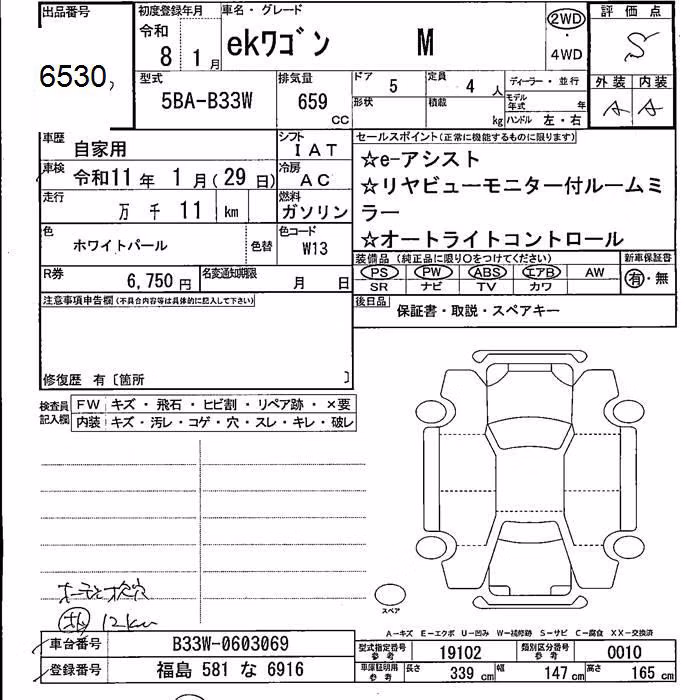 出品番号
6530
初度登録年月
令和
8 1月
車名・グレード
ekワゴン M
2WD
・
4WD
評価点
S
外装 内装
A A
型式
5BA-B33W
排気量
659
CC
ドア 5
定員 4 人
ディーラー・並行
形状
積載
kg
モデル年式 年
ハンドル 左・右
車歴
自家用
シフト
IAT
車検
令和11年 1月(29日)
冷房
AC
走行
万 千 11 km
燃料
ガソリン
色
ホワイトパール
色替
色コード
W13
R券
6,750円
名変通知期限
月 日
セールスポイント(正常に機能するものに限ります)
☆e-アシスト
☆リヤビューモニター付ルームミ
ラー
☆オートライトコントロール
装備品(純正品に限り○をつけてください)
新車保証書
PS PW ABS エアB AW
SR ナビ TV カワ
有・無
後日品
保証書・取説・スペアキー
注意事項申告欄(不具合内容等は具体的に記入して下さい)
修復歴 有〔箇所 〕
検査員
記入欄
FW キズ・飛石・ヒビ割・リペア跡・×要
内装 キズ・汚レ・コゲ・穴・スレ・キレ・破レ
12km
スペア
A-キズ E-エクボ U-凹み W-補修跡 S-サビ C-腐食 XX-交換済
車台番号
B33W-0603069
登録番号
福島 581 な 6916
型式指定番号
参考
19102
類別区分番号
参考
0010
車庫証明用
参考
長さ 339 cm
幅 147 cm
高さ 165 cm